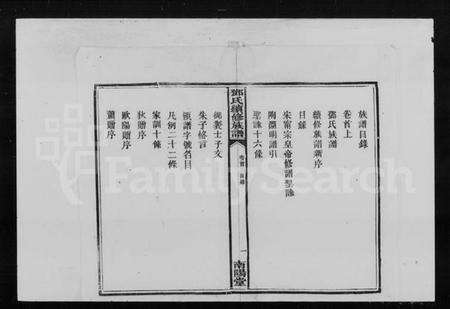 族譜目錄
卷首上
鄧氏族譜
續修族譜新序
目錄
宋甯宗皇帝修譜聖諭
陶淵明譜引
聖諭十六條
鄧氏續修族譜
卷首 目錄
一
南陽堂
朱子格言
派譜字號名目
凡例二十二條
家訓十條
狄贈序
歐陽贈序
蕭贈序
FamilySearch